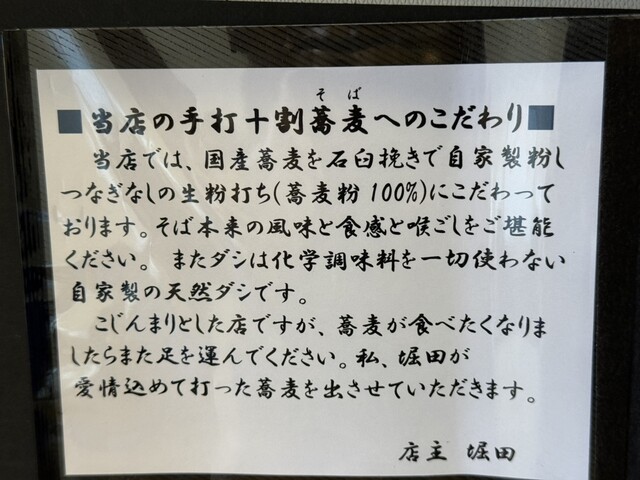 そば
■当店の手打十割蕎麦へのこだわり■
当店では、国産蕎麦を石臼挽きで自家製粉し
つなぎなしの生粉打ち(蕎麦粉100%)にこだわって
おります。そば本来の風味と食感と喉ごしをご堪能
ください。 またダシは化学調味料を一切使わない
自家製の天然ダシです。
こじんまりとした店ですが、蕎麦が食べたくなりま
したらまた足を運んでください。私、堀田が
愛情込めて打った蕎麦を出させていただきます。
店主 堀田